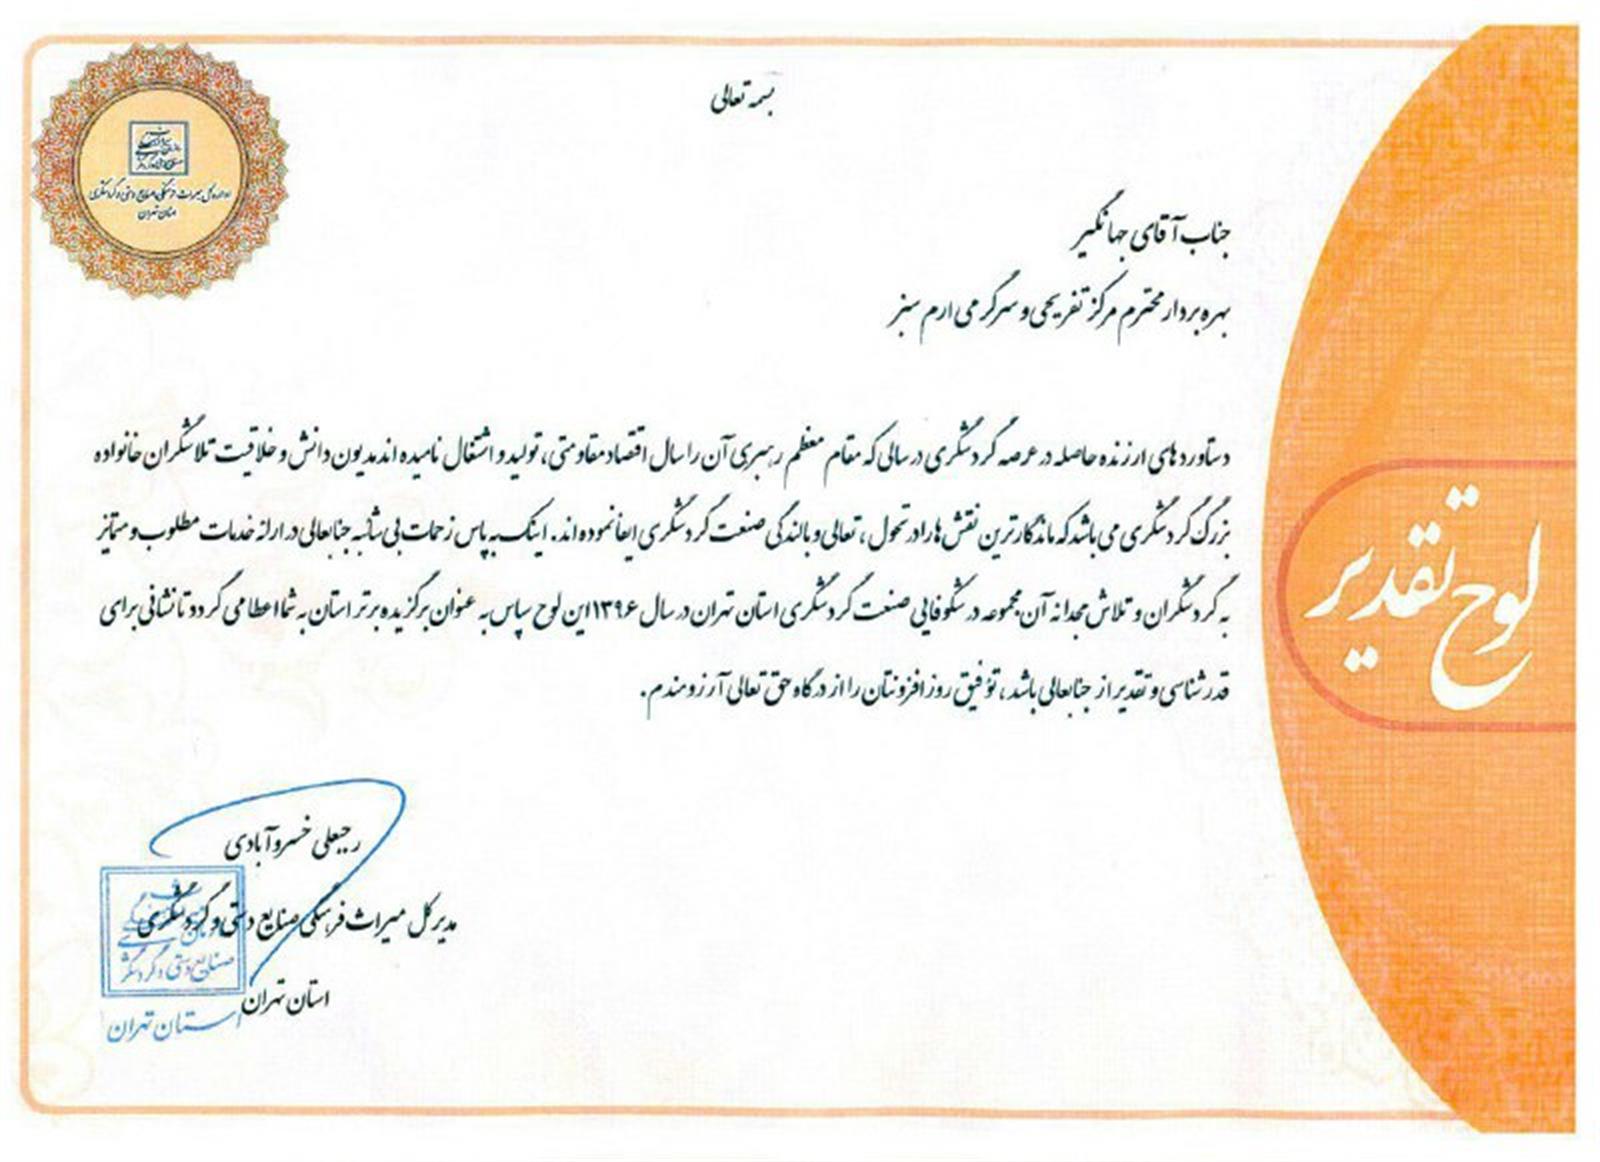 بسمه تعالی
اداره کل میراث فرهنگی، صنایع دستی و گردشگری
استان تهران
جناب آقای جهانگیر
بهره بردار محترم مرکز تفریحی و سرگرمی ارم سبز
دستاوردهای ارزنده حاصله در عرصه گردشگری در سالی که مقام معظم رهبری آن را سال اقتصاد مقاومتی، تولید و اشتغال نامیده اند مدیون دانش و خلاقیت تلاشگران خانواده
بزرگ گردشگری می باشد که ماندگارترین نقش ها را در تحول، تعالی و بالندگی صنعت گردشگری ایفا نموده اند. اینک به پاس زحمات بی شائبه جنابعالی در ارائه خدمات مطلوب و متمایز
به گردشگران و تلاش مجدانه آن مجموعه در شکوفایی صنعت گردشگری استان تهران در سال ۱۳۹۶ این لوح سپاس به عنوان برگزیده برتر استان به شما اعطا می گردد تا نشانی برای
قدرشناسی و تقدیر از جنابعالی باشد، توفیق روزافزونتان را از درگاه حق تعالی آرزومندم.
لوح تقدیر
رجبعلی خسروآبادی
مدیر کل میراث فرهنگی صنایع دستی و گردشگری
استان تهران
صنایع دستی و گردشگری
استان تهران